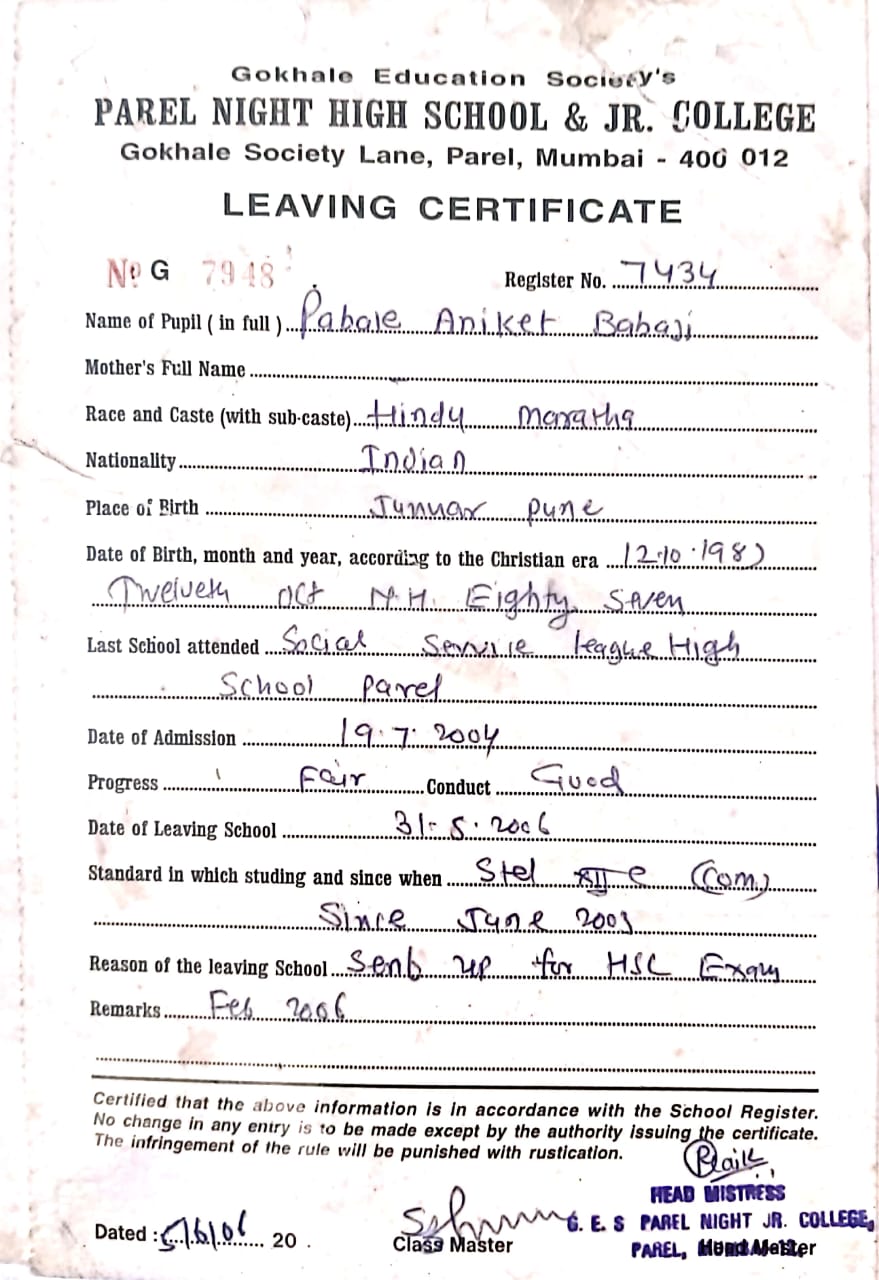 Gokhale Education Society's
PAREL NIGHT HIGH SCHOOL & JR. COLLEGE
Gokhale Society Lane, Parel, Mumbai - 400 012
LEAVING CERTIFICATE
No G 7948 Register No. 7434
Name of Pupil ( in full ) Pabale Aniket Babaji
Mother's Full Name
Race and Caste (with sub-caste) Hindu Maratha
Nationality Indian
Place of Birth Junnar Pune
Date of Birth, month and year, according to the Christian era 12.10.1987
Twelveth Oct N.H. Eighty Seven
Last School attended Social Service league High
School Parel
Date of Admission 19.7.2004
Progress Fair Conduct Good
Date of Leaving School 31-5.2006
Standard in which studing and since when Std XII e (Com.)
Since June
Reason of the leaving School Sent up for HSC Exam
Remarks Feb 2006
Certified that the above information is in accordance with the School Register.
No change in any entry is to be made except by the authority issuing the certificate.
The infringement of the rule will be punished with rustication.
HEAD MISTRESS
G. E. S PAREL NIGHT JR. COLLEGE,
Dated : 5/6/06 20 . Class Master PAREL, Head Master